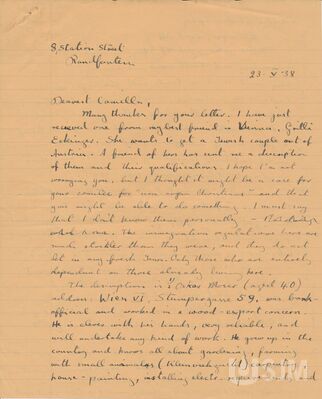 8, Station Street
23 · XI '38
Dearest Camilla,
Many thanks for your letter. I have just
received one from my best friend in Vienna,
She wants to get a Jewish couple out of
Austria. A friend of hers has sent me a description
of them and their qualifications. I hope I'm not
worrying you, but I thought it might be a case for
your committee for "non aryan Christians" and that
you might be able to do something. I must say
that I don't know them personally -
which is one. The immigration regulations here are
much stricter than they were, and they do not
let in any fresh Jews. Only those who are entirely
dependent on those already living here.
The description is: "Oskar Moser (aged 40)
address: Wien VI, Stumpergasse 59, was bank-
official and worked in a wood-export concern.
He is clever with his hands, very reliable, and
will undertake any kind of work. He grew up in the
country and knows all about gardening, farming
with small animals (Kleinviehzucht), carpentry,
house-painting, installing electr-